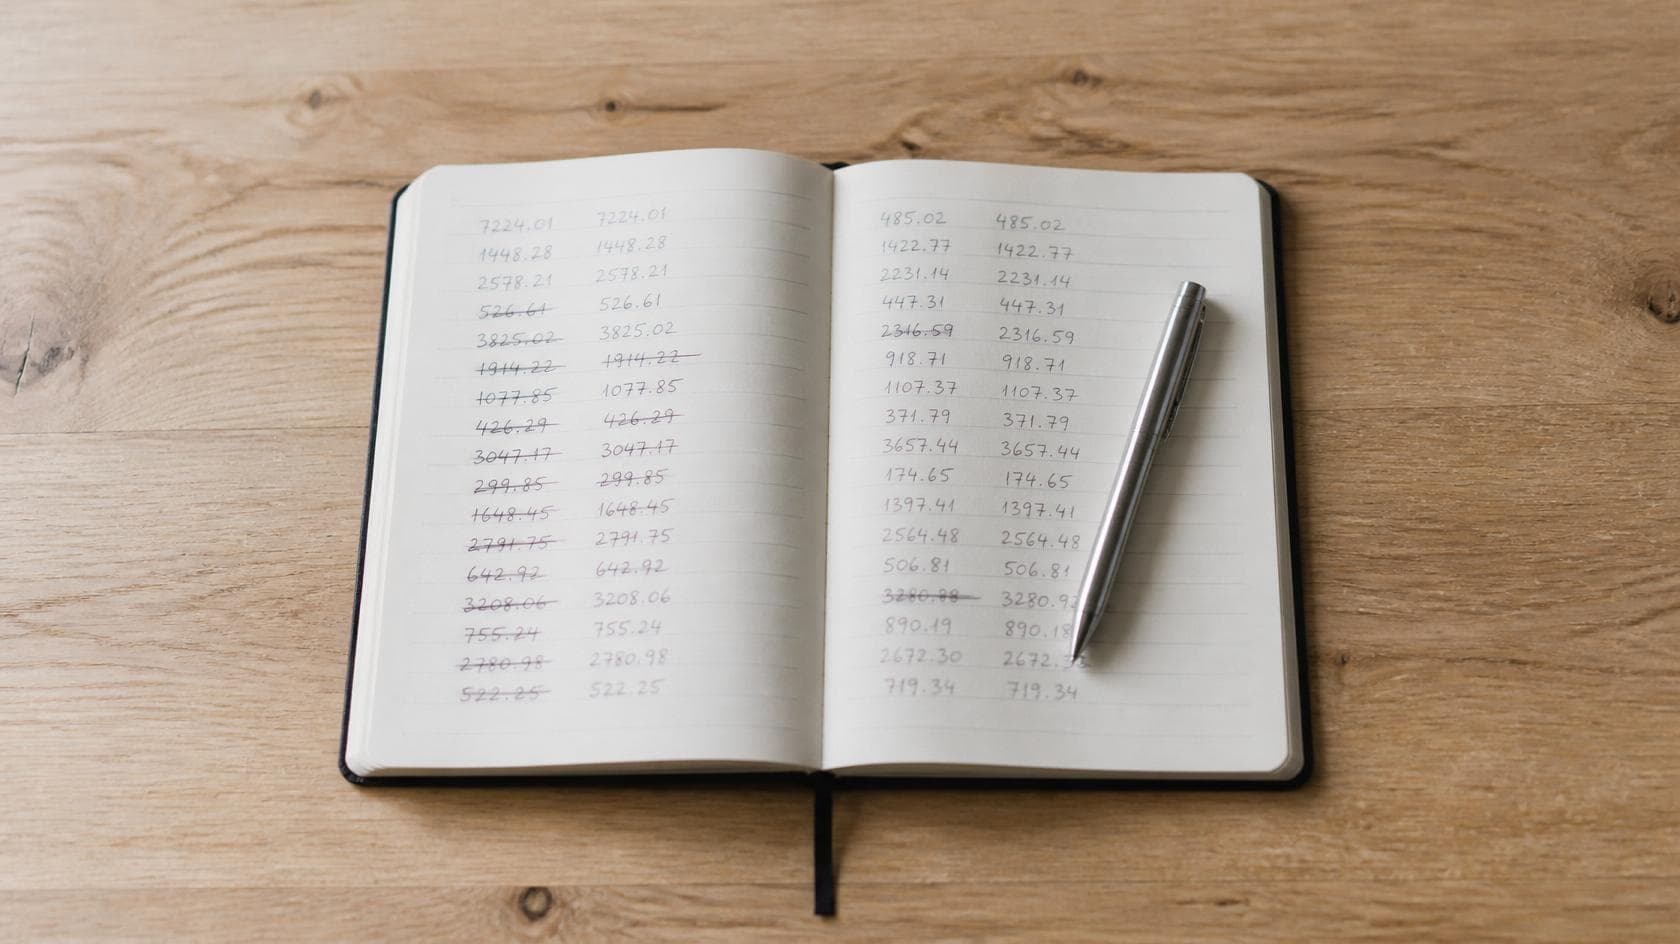 7224.01 7224.01
1448.28 1448.28
2578.21 2578.21
526.61 526.61
3825.02 3825.02
1914.22 1914.22
1077.85 1077.85
426.29 426.29
3047.17 3047.17
299.85 299.85
1648.45 1648.45
2791.75 2791.75
642.92 642.92
3208.06 3208.06
755.24 755.24
2780.98 2780.98
522.25 522.25
485.02 485.02
1422.77 1422.77
2231.14 2231.14
447.31 447.31
2316.59 2316.59
918.71 918.71
1107.37 1107.37
371.79 371.79
3657.44 3657.44
174.65 174.65
1397.41 1397.41
2564.48 2564.48
506.81 506.81
890.19 890.18
2672.30
719.34 719.34